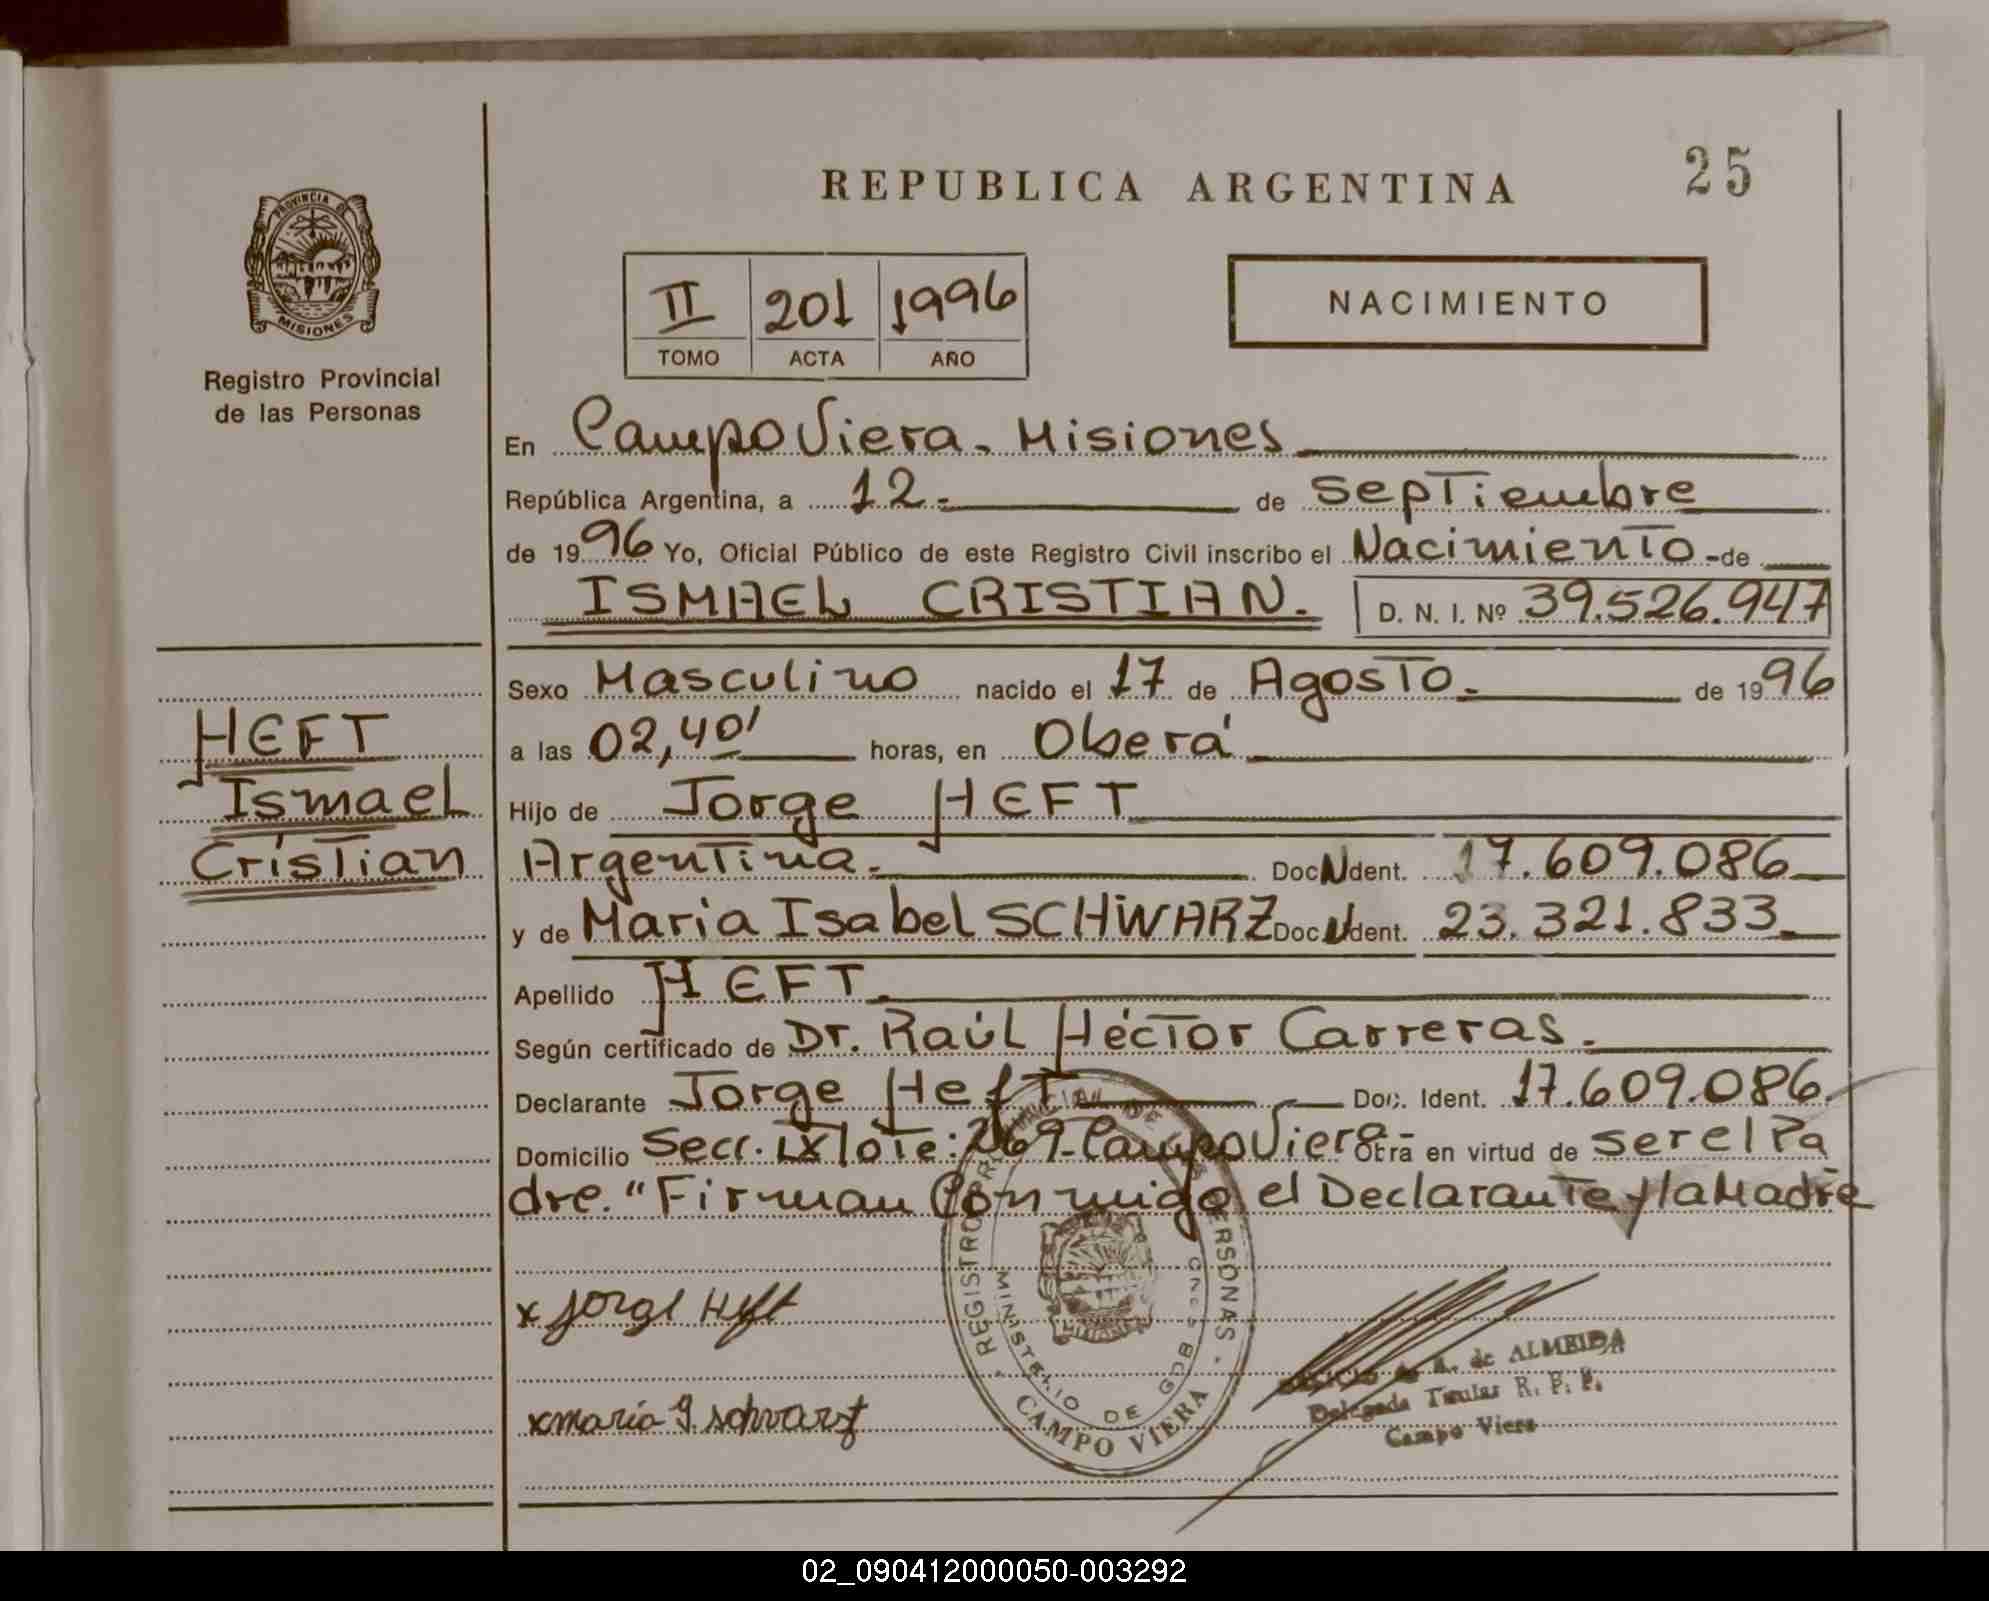 REPUBLICA ARGENTINA
25
PROVINCIA DE
MISIONES
Registro Provincial
de las Personas
II 201 1996
TOMO ACTA AÑO
NACIMIENTO
En Campo Viera - Misiones
República Argentina, a 12.- de Septiembre
de 1996 Yo, Oficial Público de este Registro Civil inscribo el Nacimiento - de
ISMAEL CRISTIAN. D. N. I. Nº 39.526.947
Sexo Masculino nacido el 17 de Agosto.- de 1996
a las 02,40' horas, en Oberá
HEFT
Ismael
Cristian
Hijo de Jorge HEFT
Argentina.- Doc N dent. 17.609.086
y de Maria Isabel SCHWARZ Doc N dent. 23.321.833
Apellido HEFT.
Según certificado de Dr. Raúl Héctor Carreras.
Declarante Jorge Heft Doc. Ident. 17.609.086.
Domicilio Secc. IX lote: 269-Campo Viera Obra en virtud de ser el Pa
dre. "Firman Conmigo el Declarante y la Madre
x Jorge Heft
x maria I. schvarz
REGISTRO PROVINCIAL DE LAS PERSONAS
MINISTERIO DE GOB
CAMPO VIERA
de ALMEIDA
Delegada Titular R. P. P.
Campo Viera
02_090412000050-003292